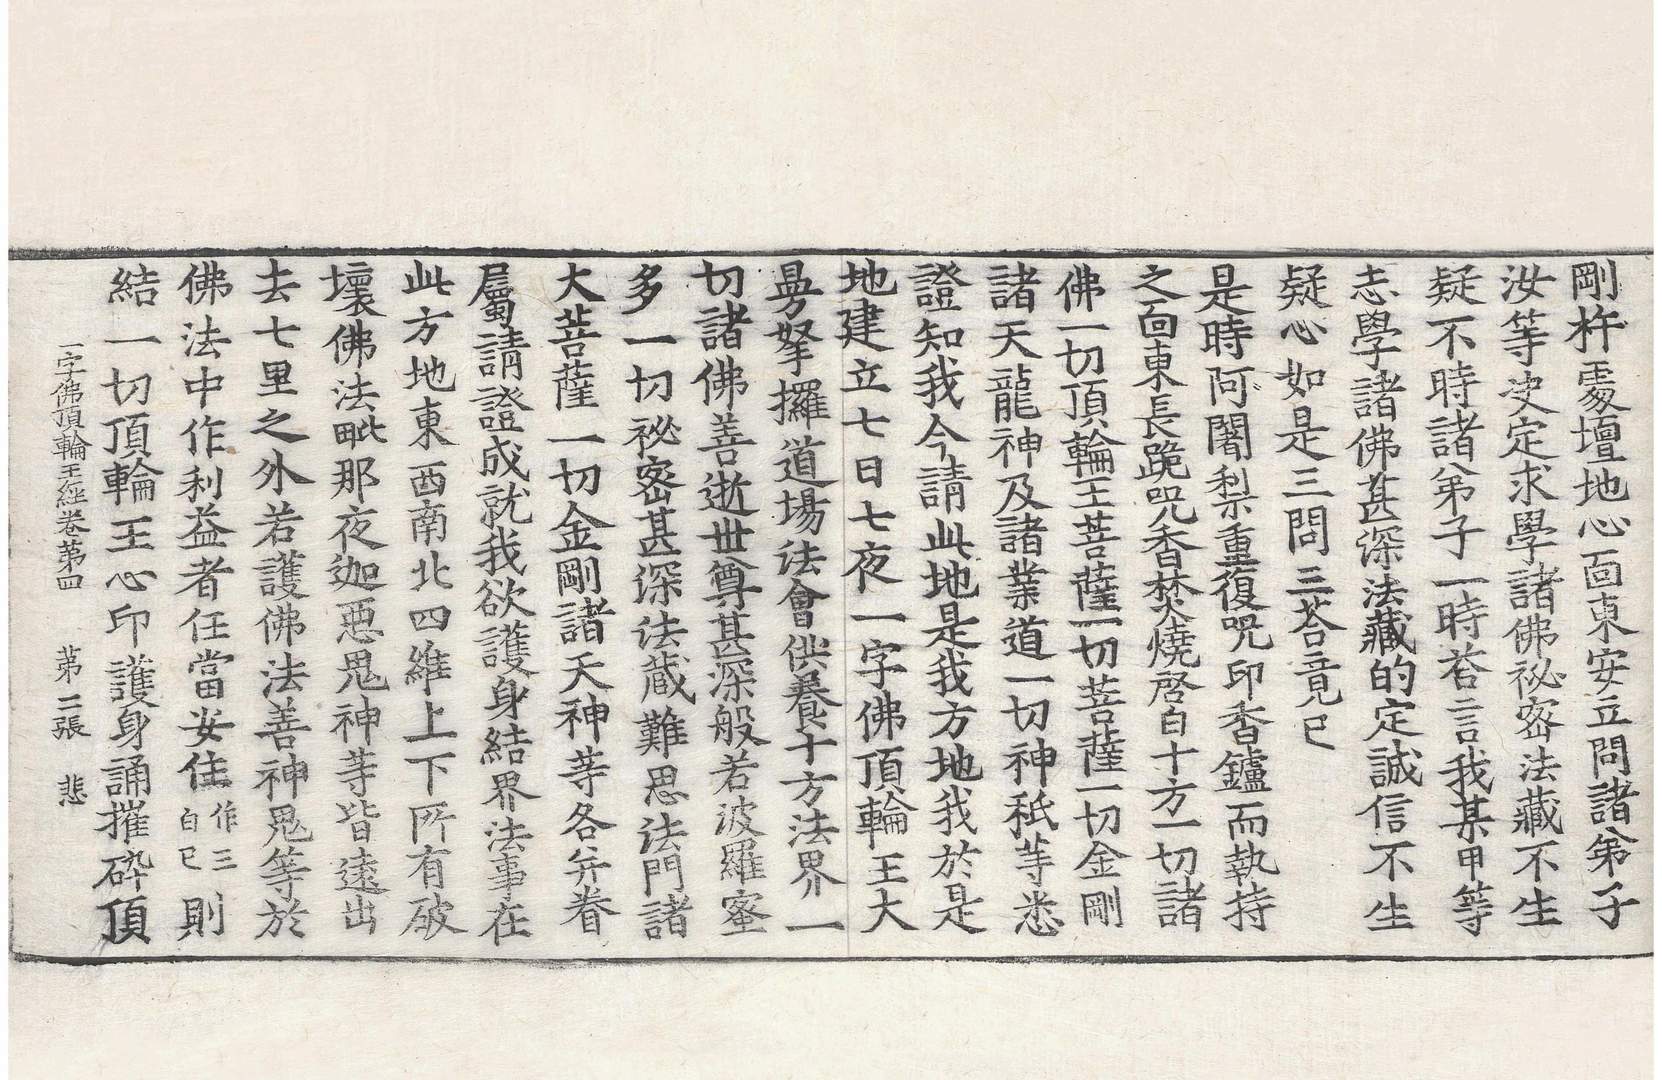 剛杵處壇地心面東安立問諸弟子
汝等決定求學諸佛祕密法藏不生
疑不時諸弟子一時荅言我某甲等
志學諸佛甚深法藏的定誠信不生
疑心如是三問三荅竟已
是時阿闍梨重復呪印香鑪而執持
之面東長跪呪香焚燒啓白十方一切諸
佛一切頂輪王菩薩一切菩薩一切金剛
諸天龍神及諸業道一切神祇等悉
證知我今請此地是我方地我於是
地建立七日七夜一字佛頂輪王大
曼拏攞道場法會供養十方法界一
切諸佛善逝世尊甚深般若波羅蜜
多一切祕密甚深法藏難思法門諸
大菩薩一切金剛諸天神等各并眷
屬請證成就我欲護身結界法事在
此方地東西南北四維上下所有破
壞佛法毗那夜迦惡鬼神等皆遠出
去七里之外若護佛法善神鬼等於
佛法中作利益者任當安住作三白已則
結一切頂輪王心印護身誦摧碎頂
一字佛頂輪王經卷第四 第二張 悲